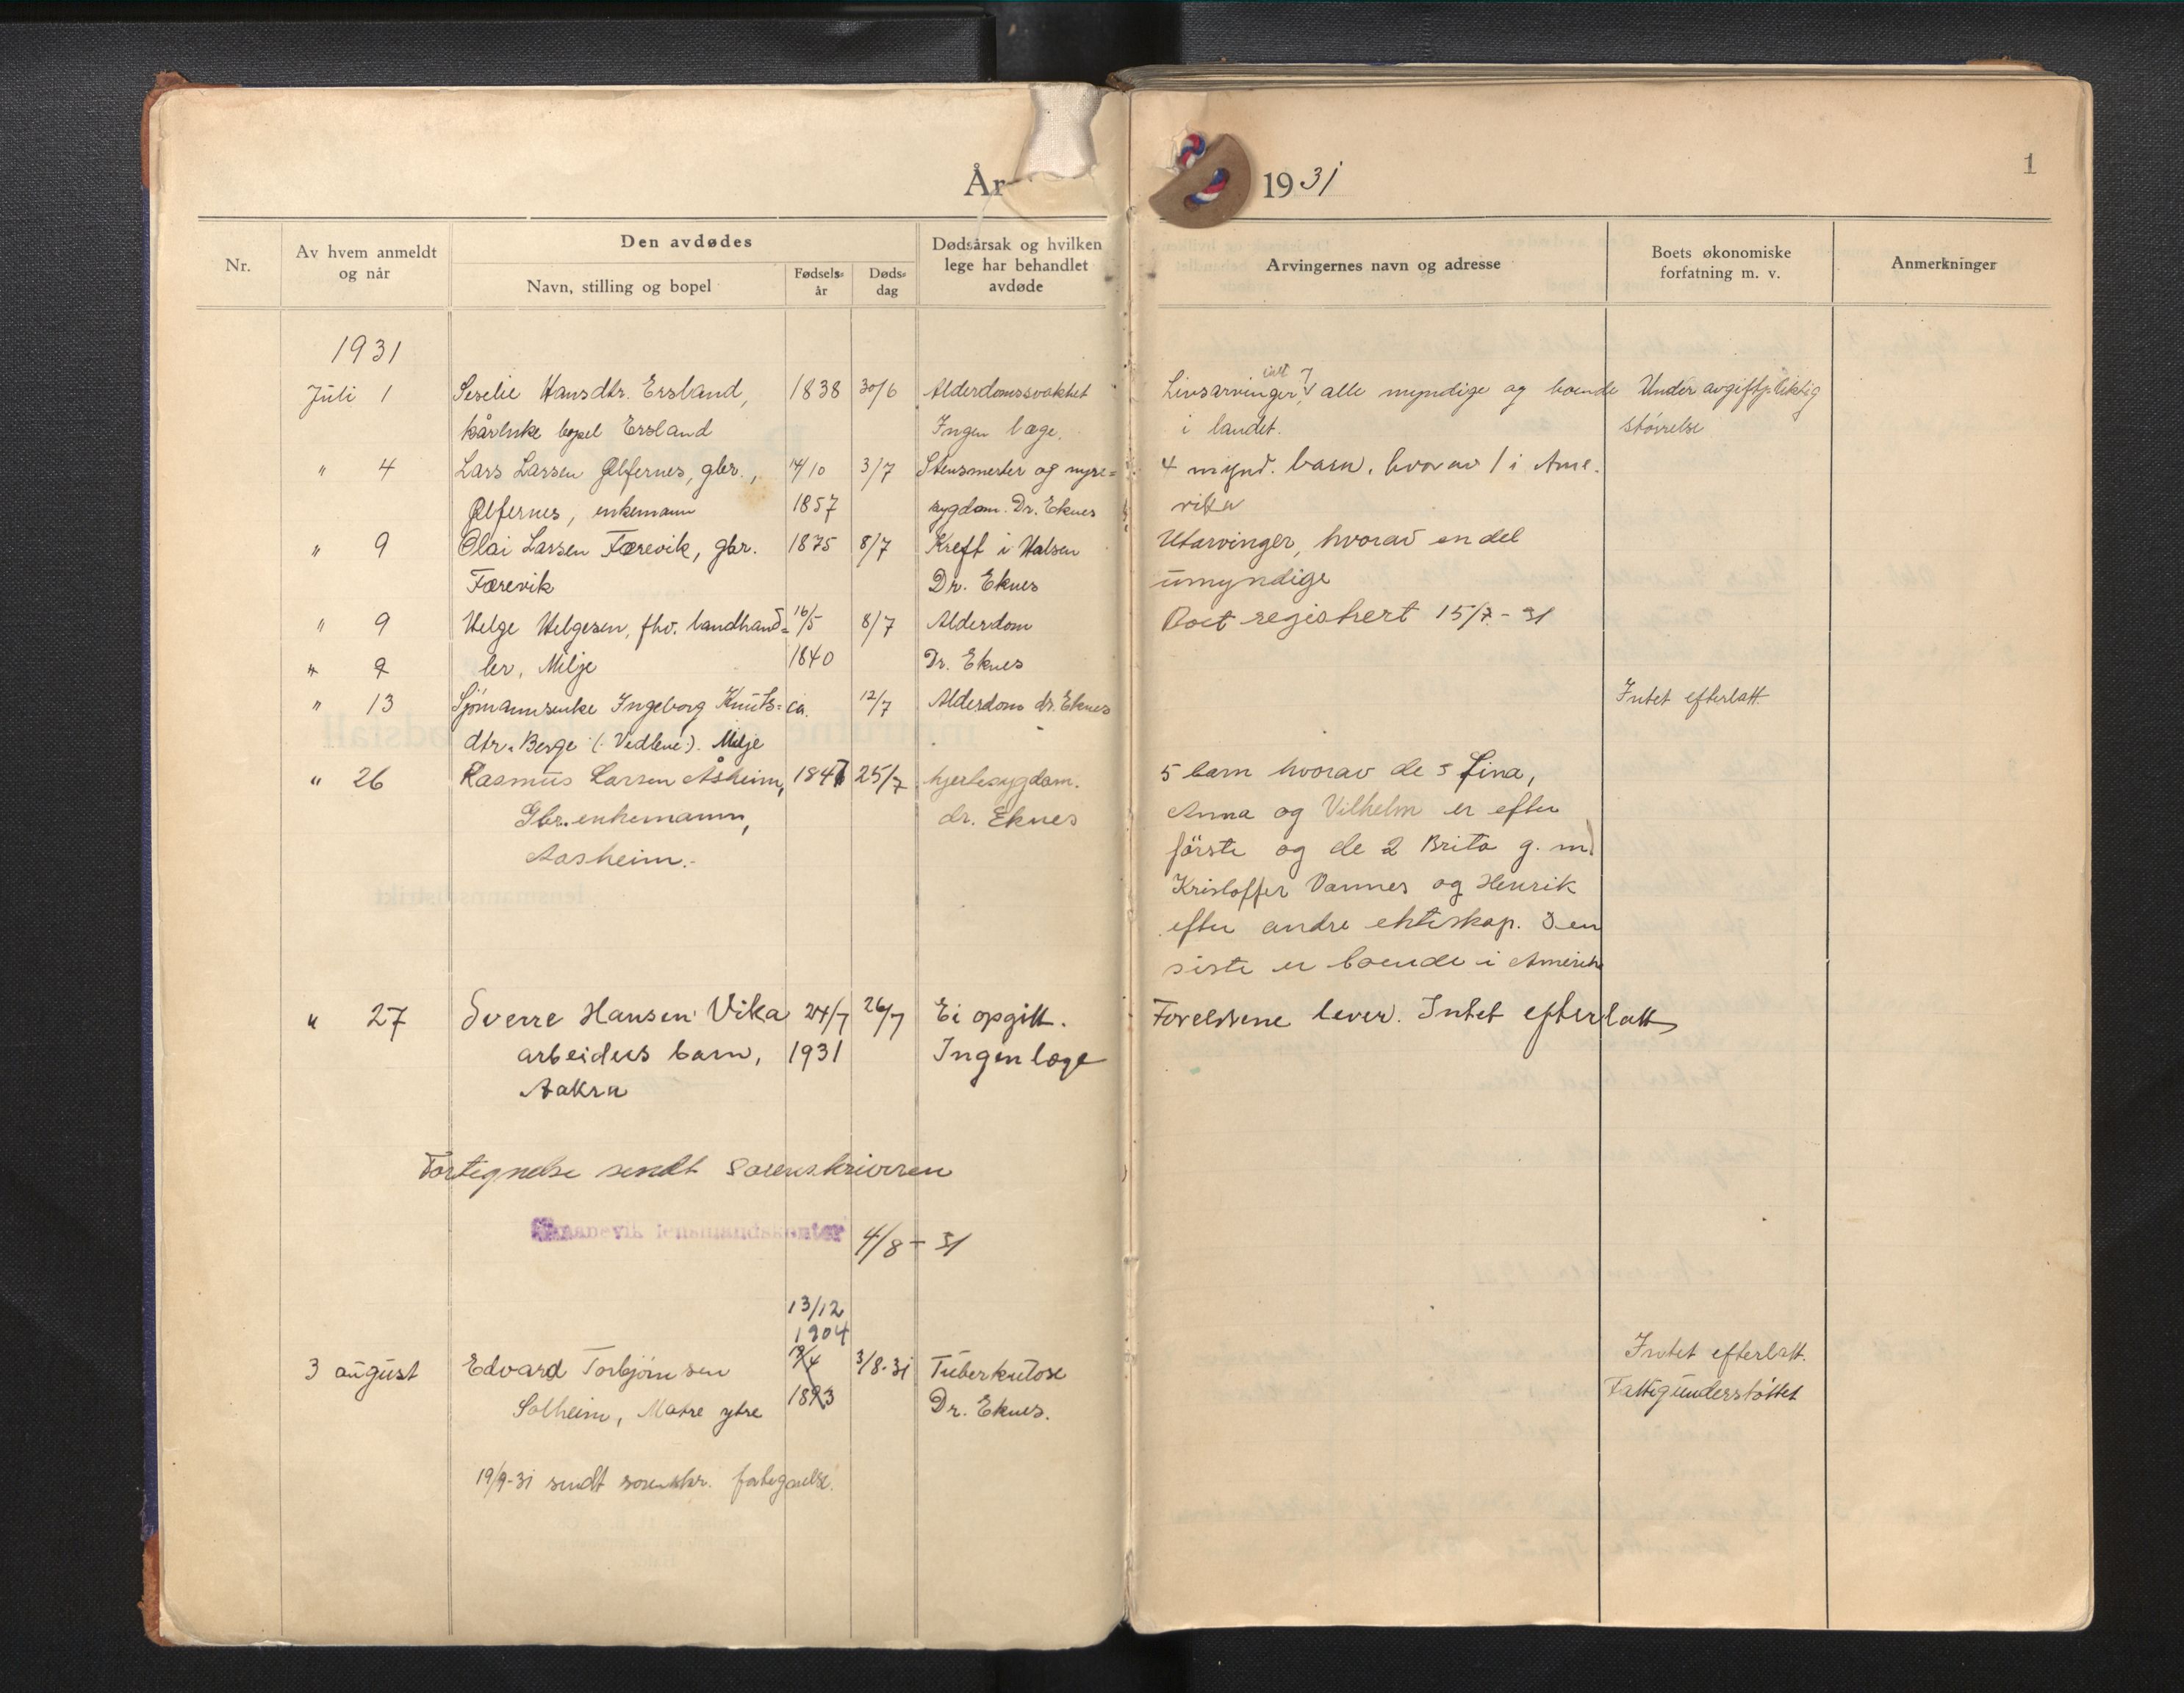 År 1931
1
Nr.
Av hvem anmeldt
og når
Den avdødes
Navn, stilling og bopel
Fødsels-
år
Døds-
dag
Dødsårsak og hvilken
lege har behandlet
avdøde
Arvingernes navn og adresse
Boets økonomiske
forfatning m. v.
Anmerkninger
1931
Juli 1 Serelie Hansdtr. Ersland, 1838 30/6 Alderdomssvakhet Livsarvinger, ialt 7 alle myndige og boende Under avgiftpliktig
kårenke bopel Ersland Ingen læge. i landet. størrelse
" 4 Lars Larsen Ølfernes, gbr., 14/10 3/7 Stensmerter og nyre= 4 mynd. barn, hvorav 1 i Ame-
Ølfernes, enkemann 1857 sygdom. Dr. Eknes rika
" 9 Olai Larsen Færevik, gbr. 1875 8/7 Kreft i Halsen Utarvinger, hvorav en del
Færevik Dr. Eknes umyndige
" 9 Helge Helgesen, fhv. landhand= 16/5 8/7 Alderdom Boet registrert 15/7 - 31
" 9 ler, Milje 1840 Dr. Eknes
" 13 Sjømannsenke Ingeborg Knuts= ca. 12/7 Alderdom dr. Eknes Intet efterlatt.
dtr. Berge (. Vedlene). Milje
" 26 Rasmus Larsen Åsheim, 1847 25/7 hjertesygdom. 5 barn hvorav de 3 Lina,
Gbr. enkemann, dr. Eknes Anna og Vilhelm er efter
Aasheim.- første og de 2 Brita g. m.
Kristoffer Vannes og Henrik
efter andre ekteskap. Den
siste er boende i Amerika
" 27 Sverre Hansen Vika 24/7 26/7 Ei opgitt. Foreldrene lever. Intet efterlatt
arbeiders barn, 1931 Ingen læge
Aakra
Fortegnelse sendt sorenskriveren
Skaanevik lensmandskontor 4/8 - 31
13/12
1904
3 august Edvard Torbjørnsen 4 3/8-31 Tuberkulose Intet efterlatt.
Solheim, Matre ytre 1893 Dr. Eknes. Fattigunderstøttet
19/9-31 sendt sorenskr. fortegnelse.